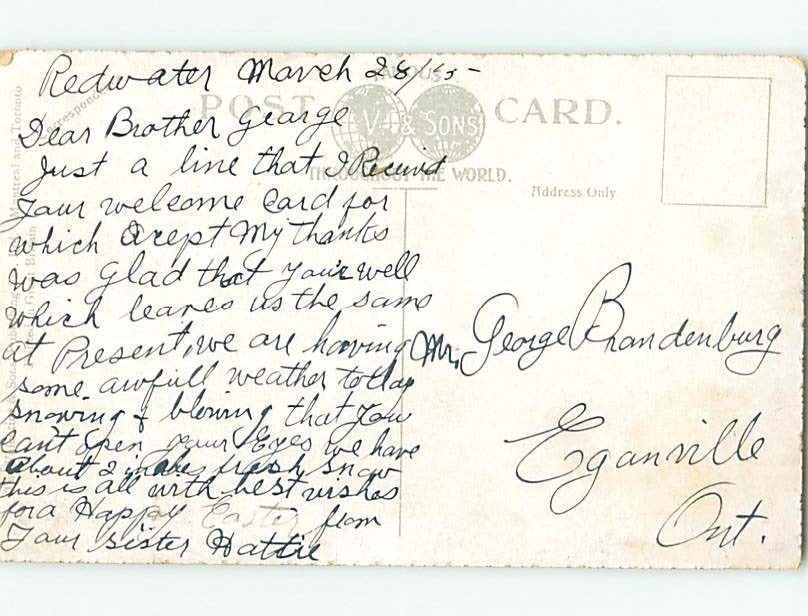 Redwater March 28/15-
Dear Brother George
Just a line that I Receivd
Your welcome Card for
which Acept My thanks
was glad that you'r well
which leaves us the same
at Present, we are having
some awfull weather today
snowing & blowing that You
can't open your Eyes we have
about 2 inches fresh snow
this is all with best wishes
for a Happy Easter from
Your sister Hattie
FAMOUS
POST CARD.
V & SONS
THROUGHOUT THE WORLD.
Address Only
Mr. George Brandenburg
Eganville
Ont.
Correspond
Montreal and Toronto
Great Britain